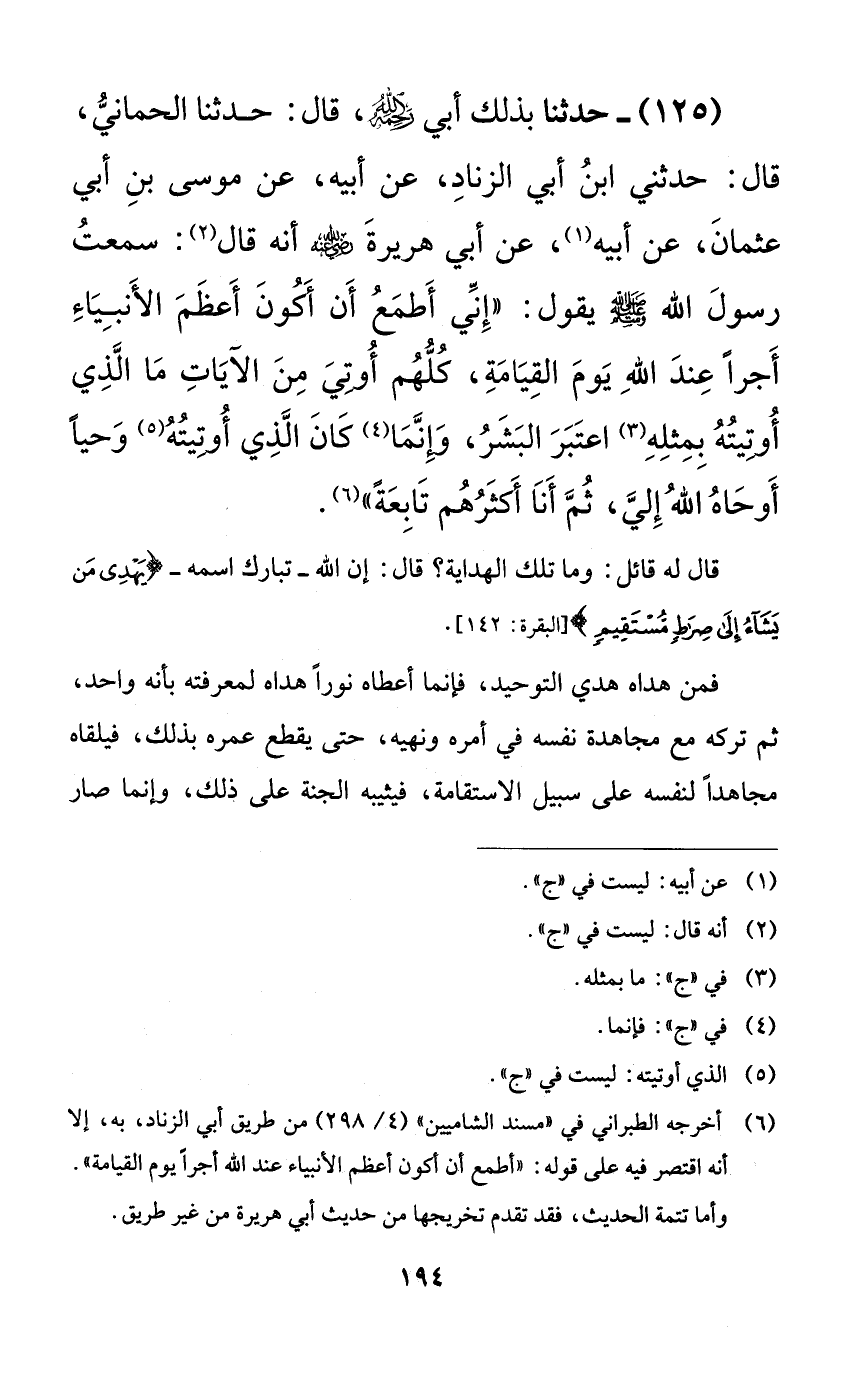 (١٢٥) ـ حدثنا بذلك أبي رحمه الله، قال: حـدثنا الحمانيُّ،
قال: حدثني ابنُ أبي الزنادِ، عن أبيه، عن موسى بنِ أبي
عثمانَ، عن أبيه(١)، عن أبي هريرةَ رضي الله عنه أنه قال(٢): سمعتُ
رسولَ الله ﷺ يقول: «إِنِّي أَطمَعُ أَن أَكُونَ أَعظَمَ الأَنبـِيَاءِ
أَجراً عِندَ اللهِ يَومَ القِيَامَةِ، كُلُّهُم أُوتِيَ مِنَ الآيَاتِ مَا الَّذِي
أُوتِيتُهُ بِمِثلِهِ(٣) اعتَبَرَ البَشَرُ، وَإِنَّمَا(٤) كَانَ الَّذِي أُوتِيتُهُ(٥) وَحياً
أَوحَاهُ اللهُ إِليَّ، ثُمَّ أَنَا أَكثَرُهُم تَابِعَةً»(٦).
قال له قائل: وما تلك الهداية؟ قال: إن الله ـ تبارك اسمه ـ ﴿يَهْدِى مَن
يَشَآءُ إِلَىٰ صِرَٰطٍ مُّسْتَقِيمٍ﴾[البقرة: ١٤٢].
فمن هداه هدي التوحيد، فإنما أعطاه نوراً هداه لمعرفته بأنه واحد،
ثم تركه مع مجاهدة نفسه في أمره ونهيه، حتى يقطع عمره بذلك، فيلقاه
مجاهداً لنفسه على سبيل الاستقامة، فيثيبه الجنة على ذلك، وإنما صار
(١) عن أبيه: ليست في «ج».
(٢) أنه قال: ليست في «ج».
(٣) في «ج»: ما بمثله.
(٤) في «ج»: فإنما.
(٥) الذي أوتيته: ليست في «ج».
(٦) أخرجه الطبراني في «مسند الشاميين» (٤/ ٢٩٨) من طريق أبي الزناد، به، إلا
أنه اقتصر فيه على قوله: «أطمع أن أكون أعظم الأنبياء عند الله أجراً يوم القيامة».
وأما تتمة الحديث، فقد تقدم تخريجها من حديث أبي هريرة من غير طريق.
١٩٤